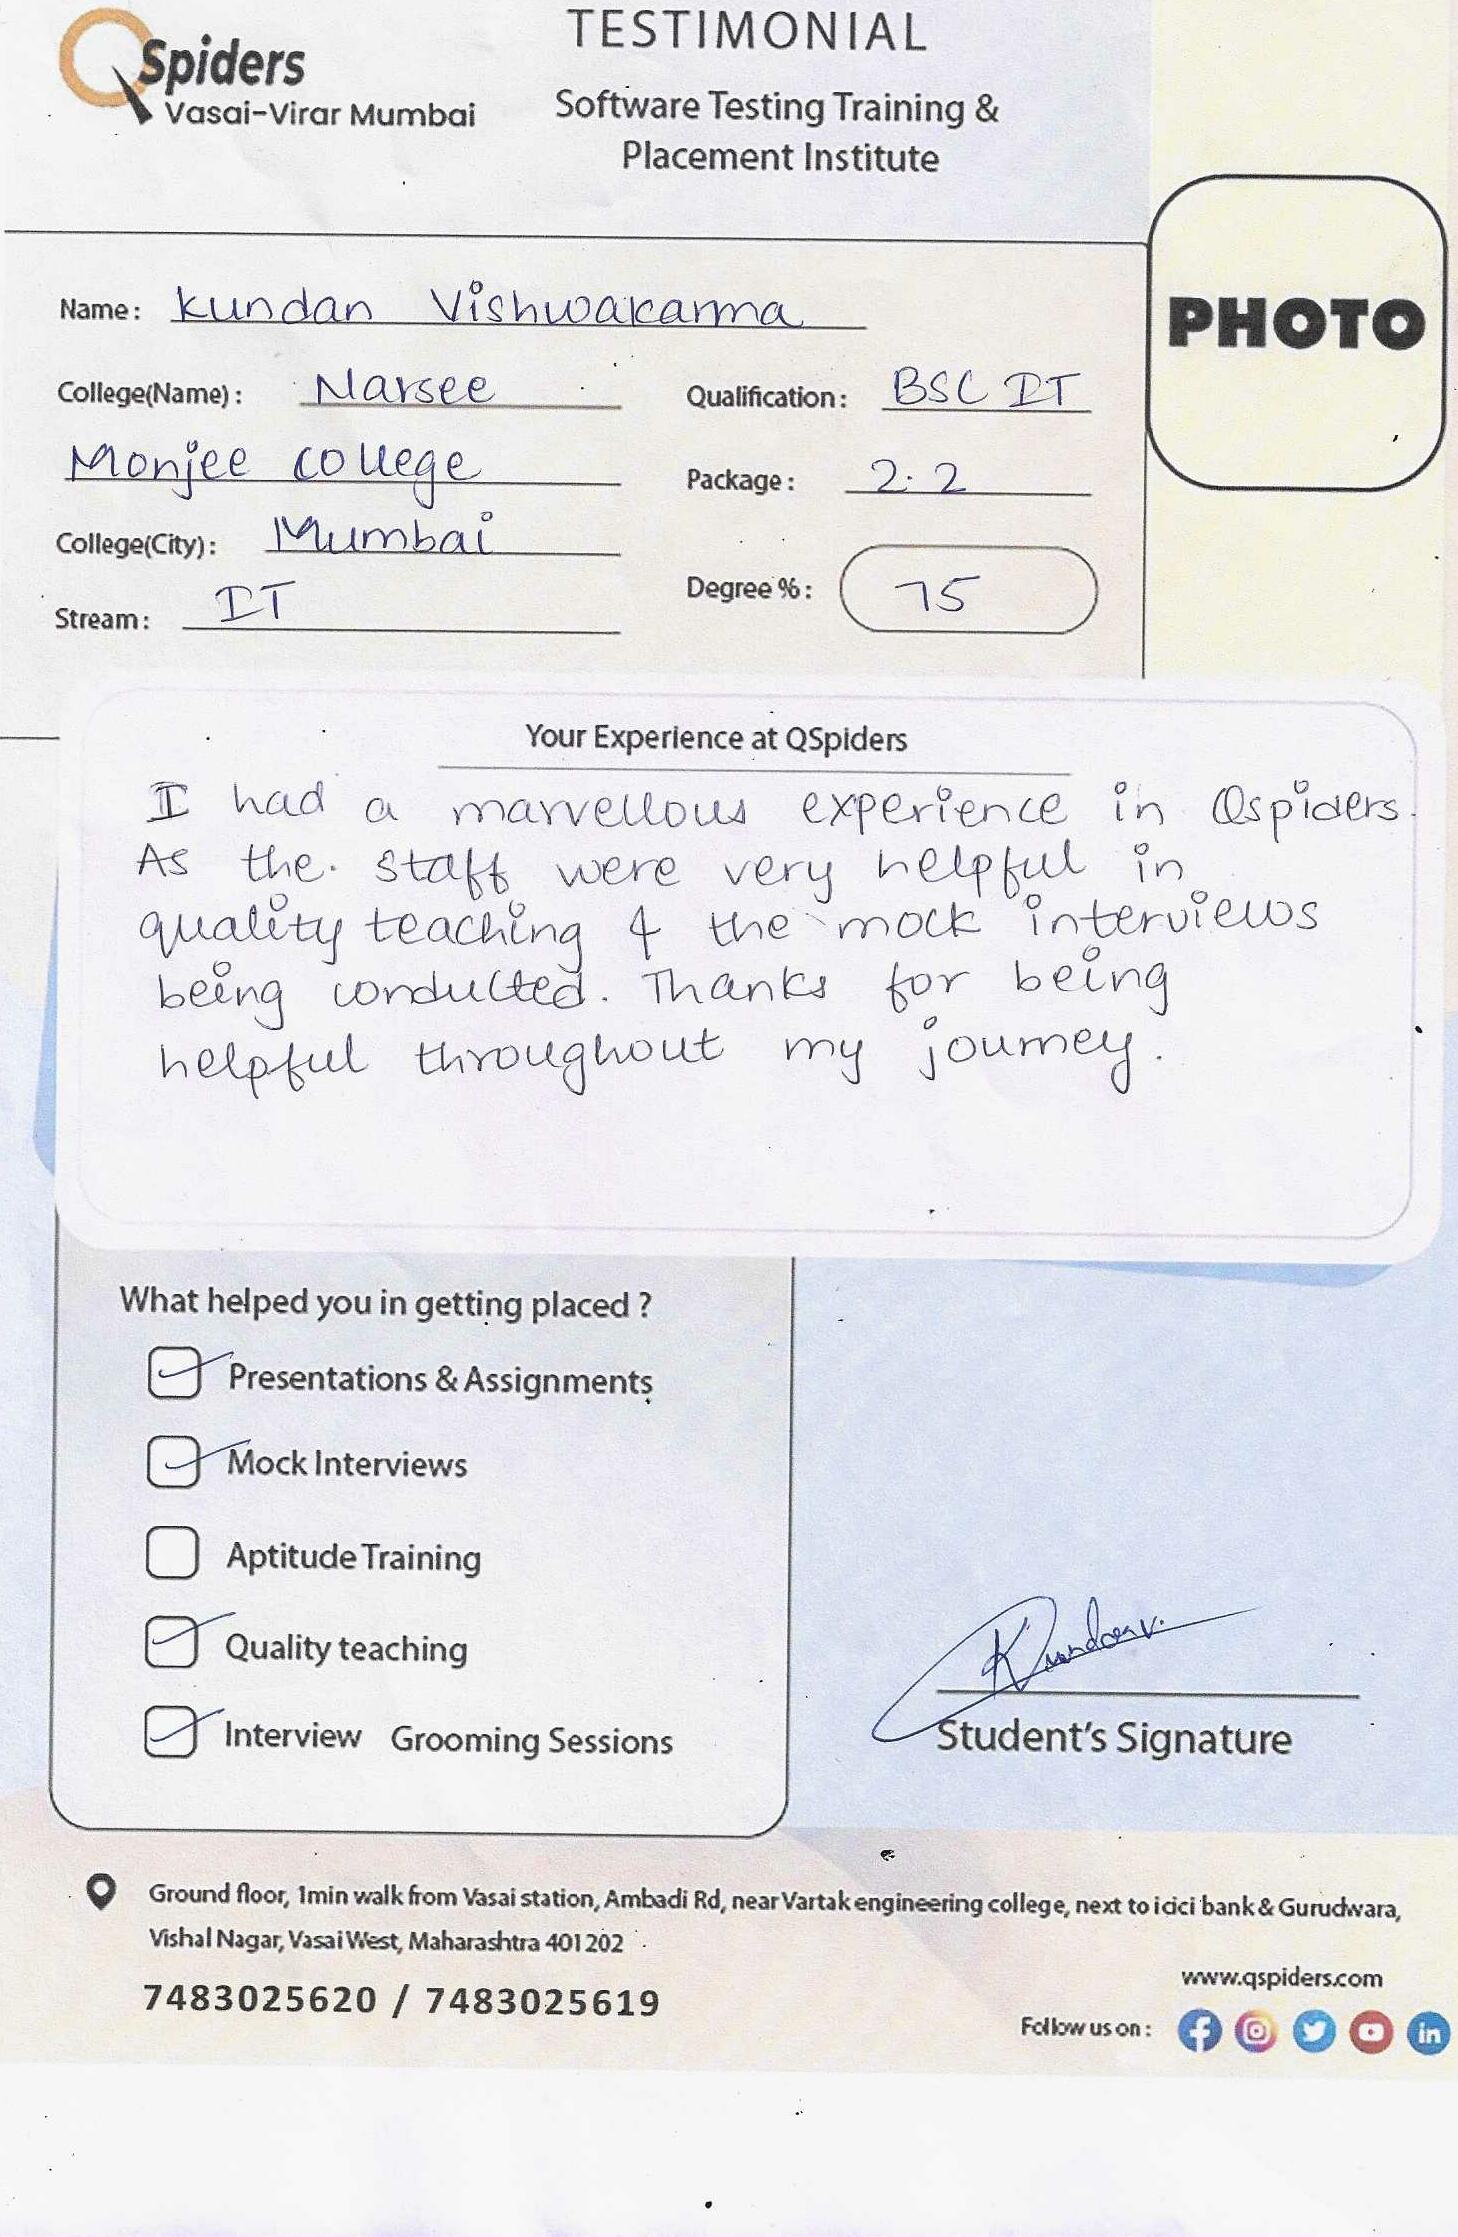 QSpiders
Vasai-Virar Mumbai
TESTIMONIAL
Software Testing Training &
Placement Institute
PHOTO
Name: Kundan Vishwakarma
College(Name): Narsee
Monjee college
College(City): Mumbai
Stream: IT
Qualification: BSC IT
Package: 2.2
Degree %: 75
Your Experience at QSpiders
I had a marvellous experience in Qspiders.
As the staff were very helpful in
quality teaching & the mock interviews
being conducted. Thanks for being
helpful throughout my journey.
What helped you in getting placed ?
Presentations & Assignments
Mock Interviews
Aptitude Training
Quality teaching
Interview Grooming Sessions
Kundan V.
Student's Signature
Ground floor, 1min walk from Vasai station, Ambadi Rd, near Vartak engineering college, next to icici bank & Gurudwara,
Vishal Nagar, Vasai West, Maharashtra 401202
7483025620 / 7483025619
www.qspiders.com
Follow us on :